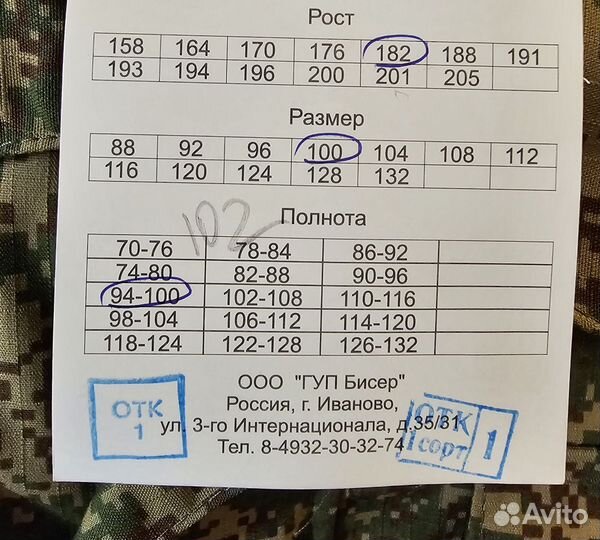 Рост
158 164 170 176 182 188 191
193 194 196 200 201 205
Размер
88 92 96 100 104 108 112
116 120 124 128 132
102
Полнота
70-76 78-84 86-92
74-80 82-88 90-96
94-100 102-108 110-116
98-104 106-112 114-120
118-124 122-128 126-132
ООО "ГУП Бисер"
Россия, г. Иваново,
ул. 3-го Интернационала, д.35/31
Тел. 8-4932-30-32-74
ОТК
1
ОТК
1 сорт
1
Avito